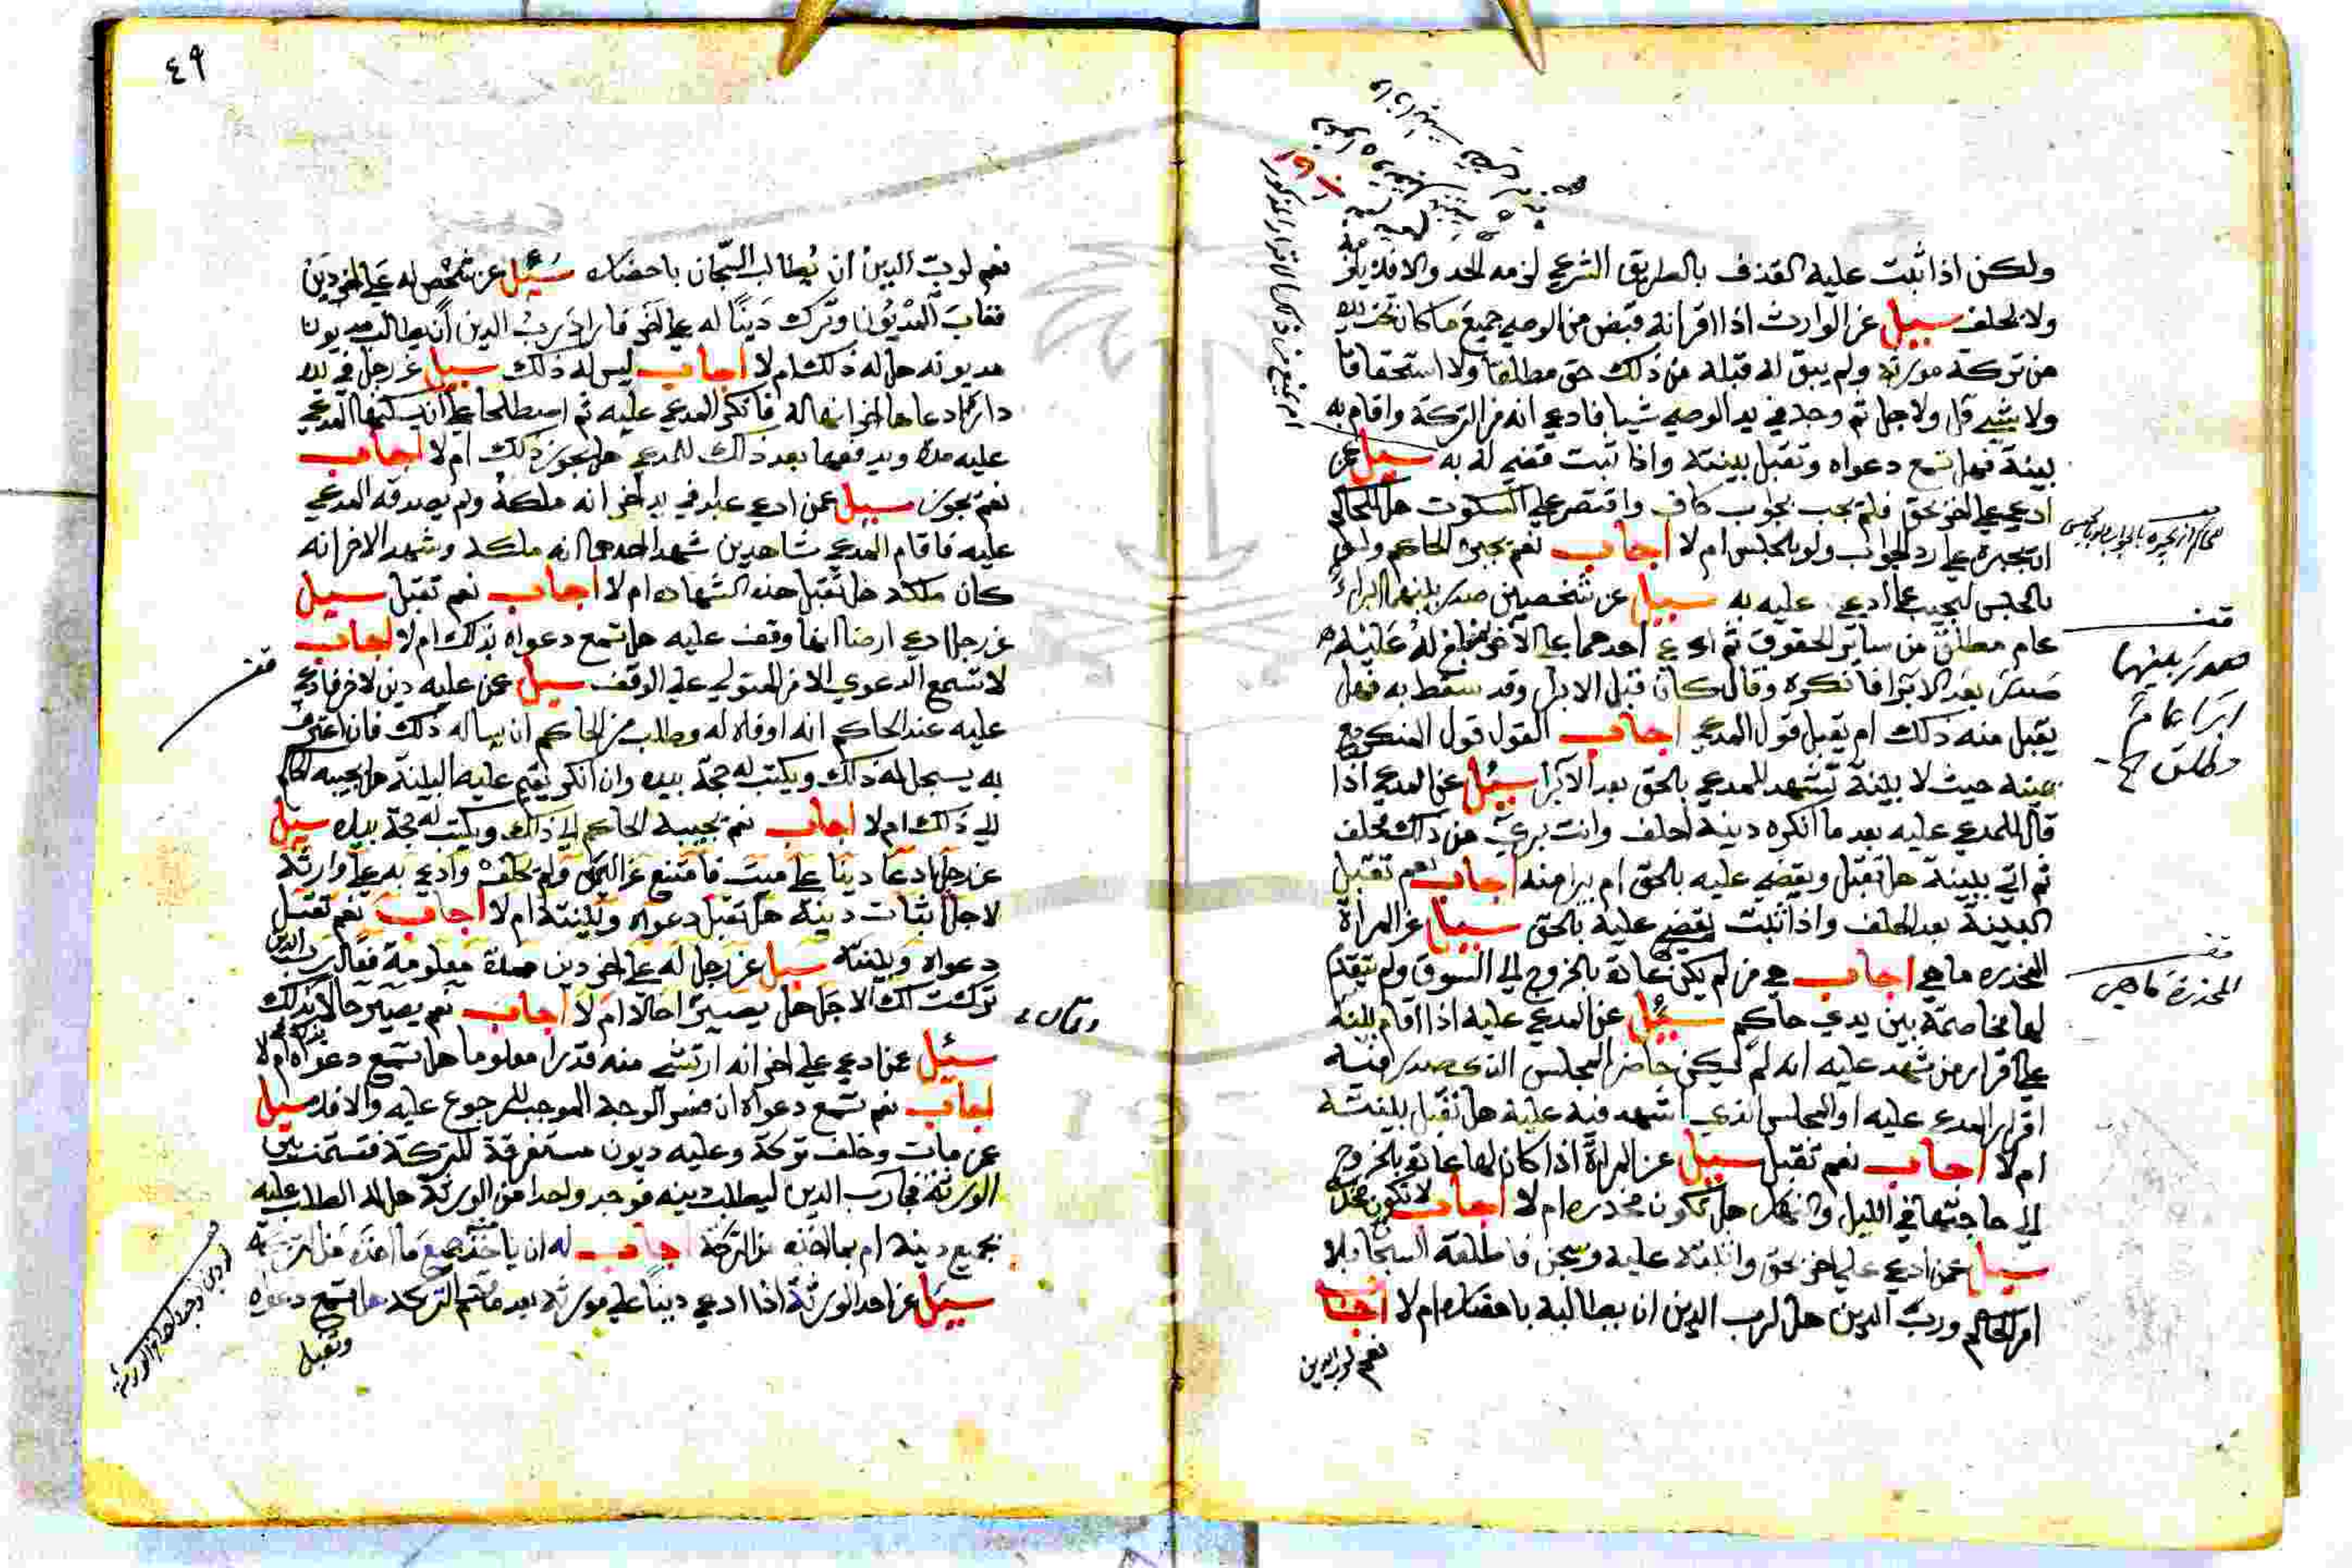 ولكن اذا ثبت عليه القذف بالطريق الشرعي لزمه الحد والا فلا يلزمه
ولا يحلف سيل عن الوارث اذا اقر انه قبض من الوصي جميع ما كان تحت يده
من تركة مورثه ولم يبق له قبله من ذلك حق مطلقا ولا استحقاقا
ولا شي قل ولا جل ثم وجد في يد الوصي شيا فادعي انه من التركة واقام به
بينة فهل تسمع دعواه وتقبل بينته واذا ثبت قضي له به سيل عمن
ادعي علي اخر بحق فلم يجب بجواب كاف واقتصر علي السكوت هل للحاكم
ان يجبره علي رد الجواب ولو بالحبس ام لا اجاب نعم يجبره الحاكم ولو
بالحبس ليجيب عما ادعي عليه به سيل عن شخصين صدر بينهما ابراء
عام مطلق من ساير الحقوق ثم ادعي احدهما علي الاخر
صدر بعد الابرا فانكره وقال كان قبل الابرا وقد سقط به فهل
يقبل منه ذلك ام يقبل قول المدعي اجاب القول قول المنكر مع
يمينه حيث لا بينة تشهد للمدعي بالحق بعد الابرا سيل عن المدعي اذا
قال للمدعي عليه بعد ما انكره دينه احلف وانت بري من ذلك فحلف
ثم اتي ببينة هل تقبل ويقضي عليه بالحق ام يبرا منه اجاب نعم تقبل
البينة بعد الحلف واذا ثبت يقضي عليه بالحق سيل عن المراة
المخدره ما هي اجاب هي من لم يكن عادة بالخروج الي السوق ولم تتقدم
لها مخاصمة بين يدي حاكم سيل عن المدعي عليه اذا اقام بينة
علي اقرار من شهد عليه انه لم يكن حاضرا المجلس الذي صدر فيه
اقرار المدعي عليه او المجلس الذي اشهد فيه عليه هل تقبل بينته
ام لا اجاب نعم تقبل سيل عن المراة اذا كان لها عادة بالخروج
الي حاجتها في الليل والنهار هل تكون مخدره ام لا اجاب لا تكون مخدرة
سيل عمن ادعي علي اخر بحق واثبته عليه وسجن فاطلقه السجان بلا
امر الحاكم ورب الدين هل لرب الدين ان يطالبه باحضاره ام لا اجاب
نعم لرب الدين
قف
صدر بينهما
ابرا عام
مطلق
قف
المخدرة ما هي
٤٩
نعم لرب الدين ان يطالب السجان باحضاره سيل عن شخص له علي اخر دين
فغاب المديون وترك دينا له علي اخر فاراد رب الدين ان يطالب مديون
مديونه هل له ذلك ام لا اجاب ليس له ذلك سيل عن رجل في يده
دار ادعاها اخر انها له فانكر المدعي عليه ثم اصطلحا علي ان يسكنها المدعي
عليه مدة ويدفعها بعد ذلك للمدعي هل يجوز ذلك ام لا اجاب
نعم يجوز سيل عمن ادعي عبدا في يد اخر انه ملكه ولم يصدقه المدعي
عليه فاقام المدعي شاهدين شهد احدهما انه ملكه وشهد الاخر انه
كان ملكه هل تقبل هذه الشهاده ام لا اجاب نعم تقبل سيل
عن رجل ادعي ارضا انها وقف عليه هل تسمع دعواه بذلك ام لا اجاب
لا تسمع الدعوي الا من المتولي علي الوقف سيل عمن عليه دين لاخر فادعي
عليه عند الحاكم انه اوفاه له وطلب من الحاكم ان يساله ذلك فان اعترف
به يسجل له ذلك ويكتب له حجة بيده وان انكر يقيم عليه البينة هل يجيبه الحاكم
الي ذلك ام لا اجاب نعم يجيبه الحاكم الي ذلك ويكتب له حجة بيده سيل
عن رجل ادعا دينا علي ميت فامتنع عن اليمين ولم يحلف وادعي به علي وارثه
لاجل اثبات دينه هل تقبل دعواه وبينته ام لا اجاب نعم تقبل
دعواه وبينته سيل عن رجل له علي اخر دين مدة معلومة فقال رب الدين
تركت لك الاجل هل يصير حالا ام لا اجاب نعم يصير حالا بذلك
سيل عمن ادعي علي اخر انه ارتشي منه قدرا معلوما هل تسمع دعواه بذلك ام لا
اجاب نعم تسمع دعواه ان فسر الوجه الموجب للرجوع عليه والا فلا سيل
عمن مات وخلف تركة وعليه ديون مستغرقة للتركة فقسمت بين
الورثة فجا رب الدين ليطلب دينه فوجد واحدا من الورثة هل له الطلب عليه
بجميع دينه ام بما اخذه من التركة اجاب له ان ياخذ جميع ما اخذه من التركة
سيل عن احد الورثة اذا ادعي دينا علي مورثه بعد قسم التركة هل تسمع دعواه
وتقبل
قف